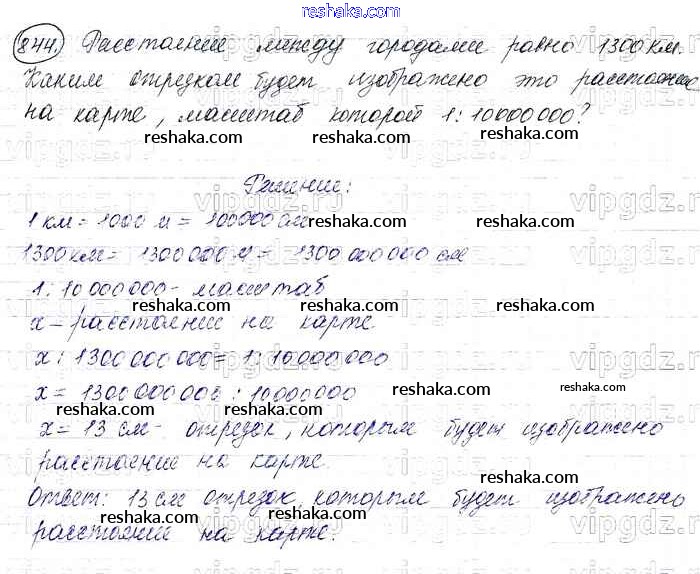 reshaka.com
844. Расстояние между городами равно 1300 км.
reshaka.com
Каким отрезком будет изображено это расстояние
на карте, масштаб которой 1:10000000?
reshaka.com reshaka.com reshaka.com
Решение:
1 км = 1000 м = 100000 см
reshaka.com reshaka.com
1300 км = 1300000 м = 1300 000 000 см
1:10000000 - масштаб
reshaka.com reshaka.com
x - расстояние на карте
reshaka.com
x : 1300 000 000 = 1:10000000
x = 1300 000 000 : 10000000
reshaka.com reshaka.com
reshaka.com
x = 13 см - отрезок, которым будет изображено
расстояние на карте.
reshaka.com reshaka.com
Ответ: 13 см отрезок, которым будет изображено
reshaka.com reshaka.com
расстояние на карте.
reshaka.com
vipgdz.ru